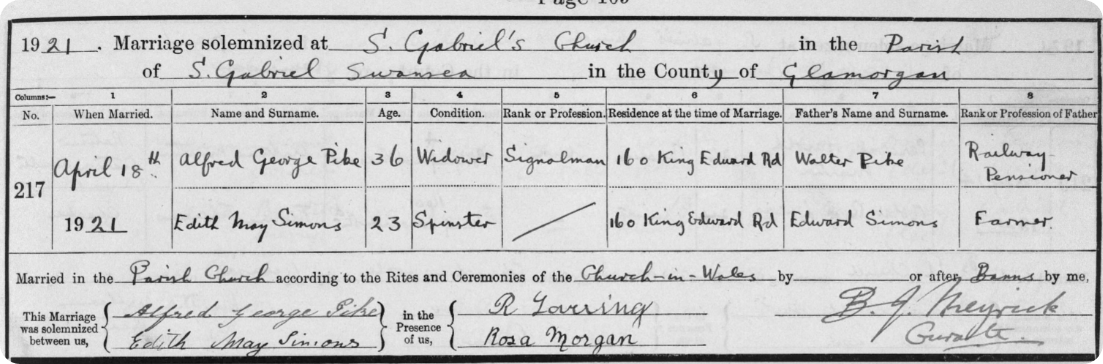 Page 109
1921. Marriage solemnized at S. Gabriel's Church in the Parish
of S. Gabriel Swansea in the County of Glamorgan
Columns:— 1 2 3 4 5 6 7 8
No. When Married. Name and Surname. Age. Condition. Rank or Profession. Residence at the time of Marriage. Father's Name and Surname. Rank or Profession of Father
217 April 18th 1921 Alfred George Pike 36 Widower Signalman 160 King Edward Rd Walter Pike Railway Pensioner
Edith May Simons 23 Spinster 160 King Edward Rd Edward Simons Farmer.
Married in the Parish Church according to the Rites and Ceremonies of the Church-in-Wales by or after Banns by me,
This Marriage was solemnized between us, Alfred George Pike in the Presence of us, R Lovering B. J.
Edith May Simons Rosa Morgan Curate